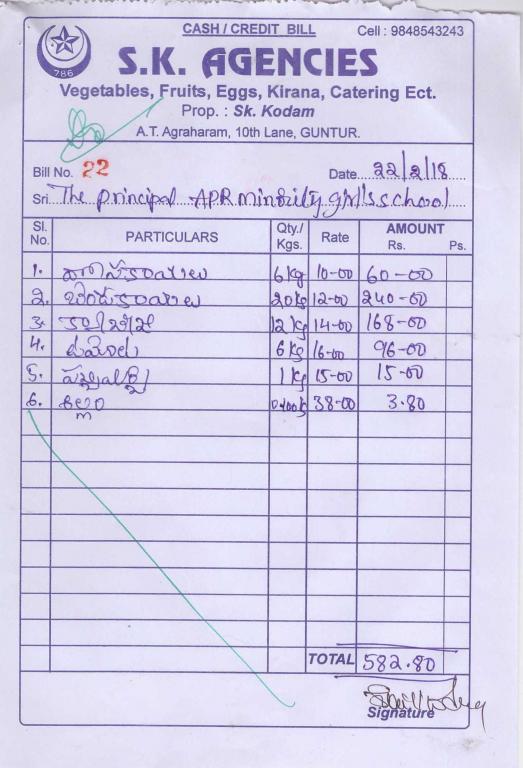 CASH / CREDIT BILL Cell : 9848543243
786
S.K. AGENCIES
Vegetables, Fruits, Eggs, Kirana, Catering Ect.
Prop. : Sk. Kodam
A.T. Agraharam, 10th Lane, GUNTUR.
Bill No. 22 Date 22/2/18
Sri The principal APR minority girl's school
Sl. No. PARTICULARS Qty./ Kgs. Rate AMOUNT Rs. Ps.
1. 6 kg 10-00 60-00
2. బెండకాయలు 20kg 12-00 240-00
3. క్యాబేజి 12 kg 14-00 168-00
4. టమోట 6 kg 16-00 96-00
5. పచ్చిమిర్చి 1 kg 15-00 15-00
6. అల్లం 38-00 3.80
TOTAL 582.80
Signature